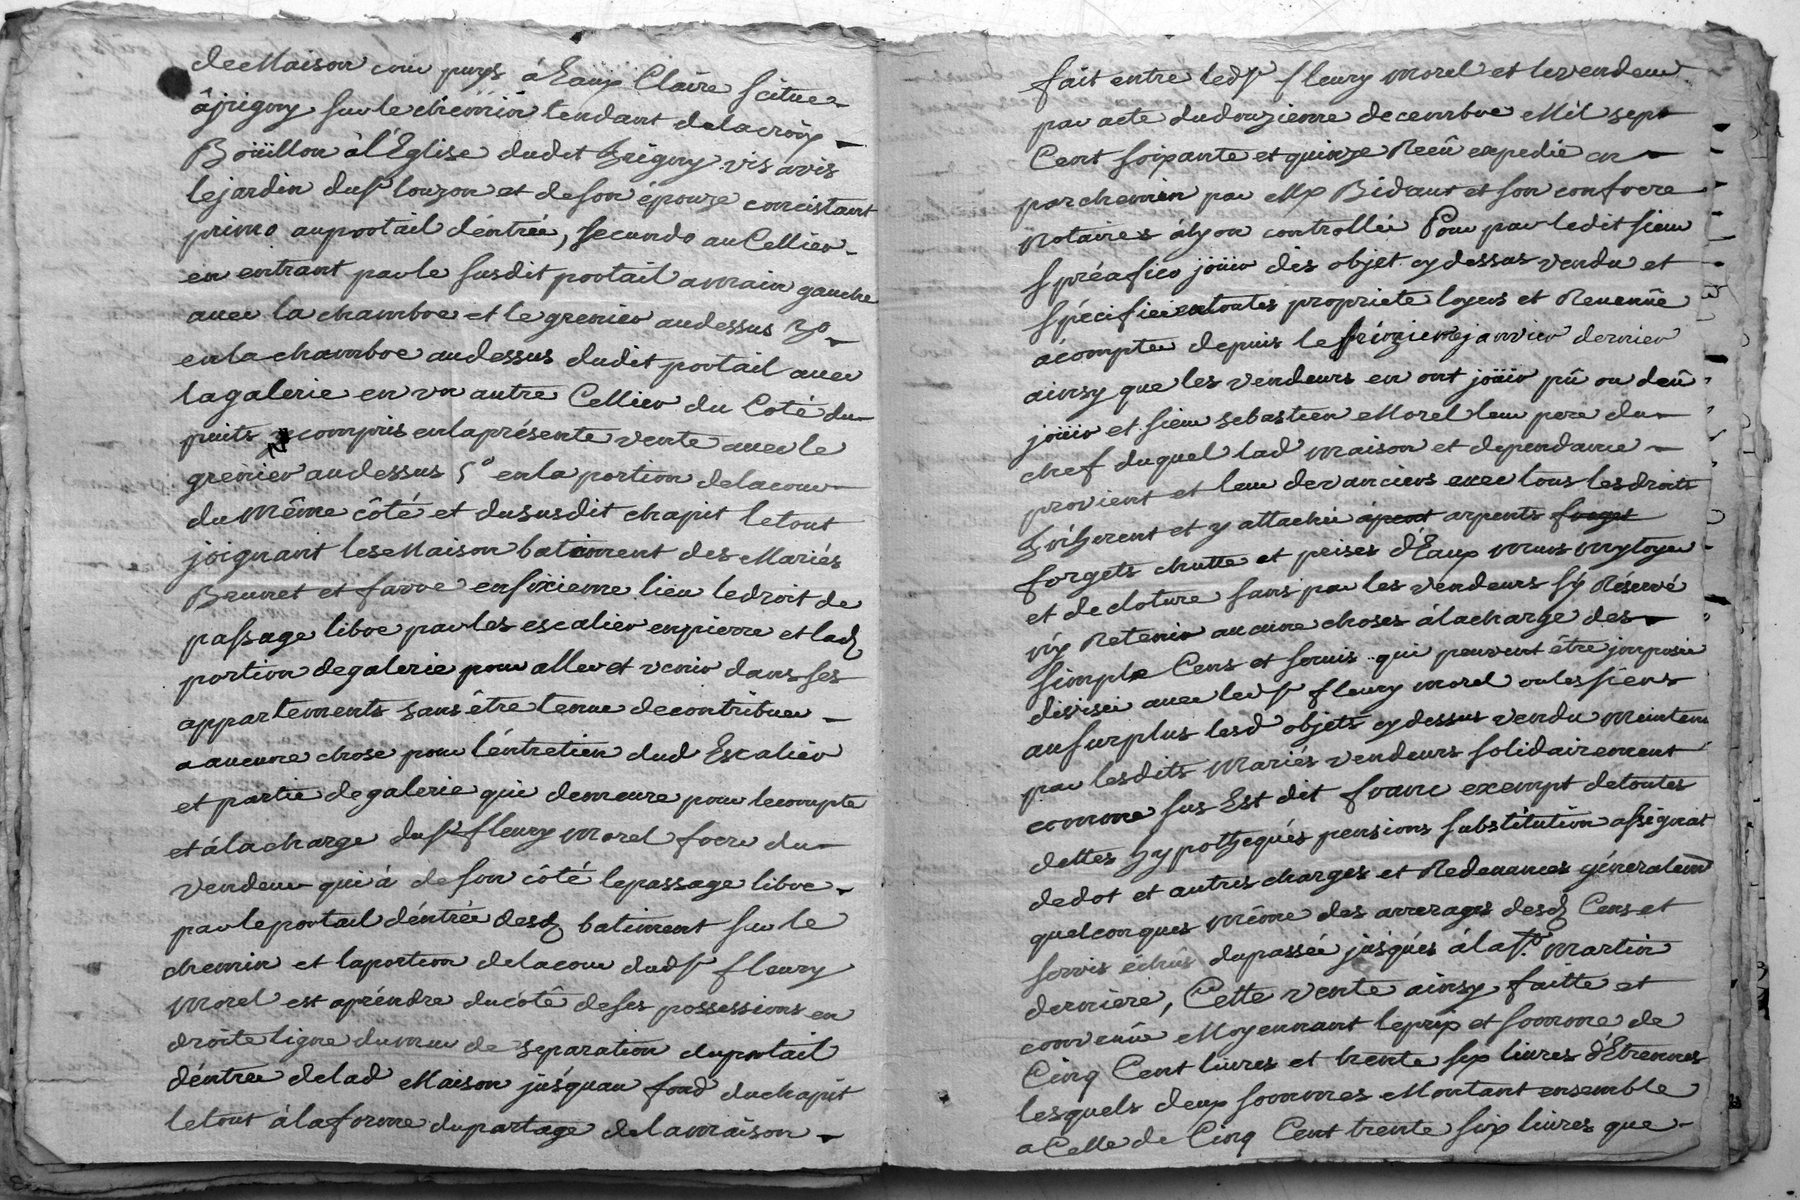 de Maison cour puys à Eaux Claire scitue
à jrigny sur le chemin tendant de la croix
Boüillon à l'Eglise dudit hrigny vis avis
le jardin du sr louzon et de son épouze concistant
primo au portail d'éntrée, secundo au Cellier
en entrant par le susdit portail a main gauche
avec la chambre et le grenier au dessus 3o
en la chambre au dessus dudit portail avec
la galerie en vn autre Cellier du Coté du
puits compris en la présente vente avec le
grenier au dessus 5o en la portion de la cour
du même côté et du susdit chapit le tout
joignant les Maison batiment des Mariés
Beunet et favre en sixieme lieu le droit de
passage libre par les escalier en pierre et lad
portion de galerie pour aller et venir dans ses
appartements sans être tenue de contribuer
a aucune chose pour l'éntretien dud Escalier
et partie de galerie qui demeure pour le compte
et à la charge du sr fleury morel frere du
vendeur qui à de son côté le passage libre
par le portail d'éntrée desd batiment sur le
chemin et la portion de la cour dud sr fleury
morel est a préndre du côté de ses possessions en
droite ligne du mur de separation du portail
d'éntree de lad Maison jusquau fond du chapit
le tout à la forme du partage de la maison
fait entre led sr fleury morel et le vendeur
par acte du douzieme decembre Mil sept
Cent soixante et quinze Reçû expedié en
parchemin par Me Bidaut et son confrere
Notaires à lyon controllé Pour par ledit sieur
spréafico joüir des objet cy dessus vendu et
spécifiée en toutes propriete loyers et Revenüe
à compter depuis le janvier dernier
ainsy que les vendeurs en ont joüir pû ou deû
joüir et sieur sebastien Morel leur pere du
chef duquel lad maison et dependance
provient et leur devanciers avec tous les droits
jnherent et y attachée apent arpents forget
forgets chutte et peises d'Eaux murs mytoyen
et de cloture sans par les vendeurs s'y Réservé
n'y Retenir aucune choses à la charge des
simple Cens et servis qui peuvent être jmposée
divisée avec led sr fleury morel ou les siens
au surplus lesd objets cy dessus vendu meinten
par lesdits Mariés vendeurs solidairement
comme sus Est dit franc exempt de toutes
dettes hypothequés pensions substitution assignat
de dot et autres charges et Redevances généralem
quelconques même des arrerages desd Cens et
servis échus du passée jusqués à la St martin
derniere, Cette vente ainsy faitte et
convenüe Moyennant le prix et somme de
Cinq Cent livres et trente six livres d'Etrennes
lesquels deux sommes Montant ensemble
a Celle de Cinq Cent trente six livres que